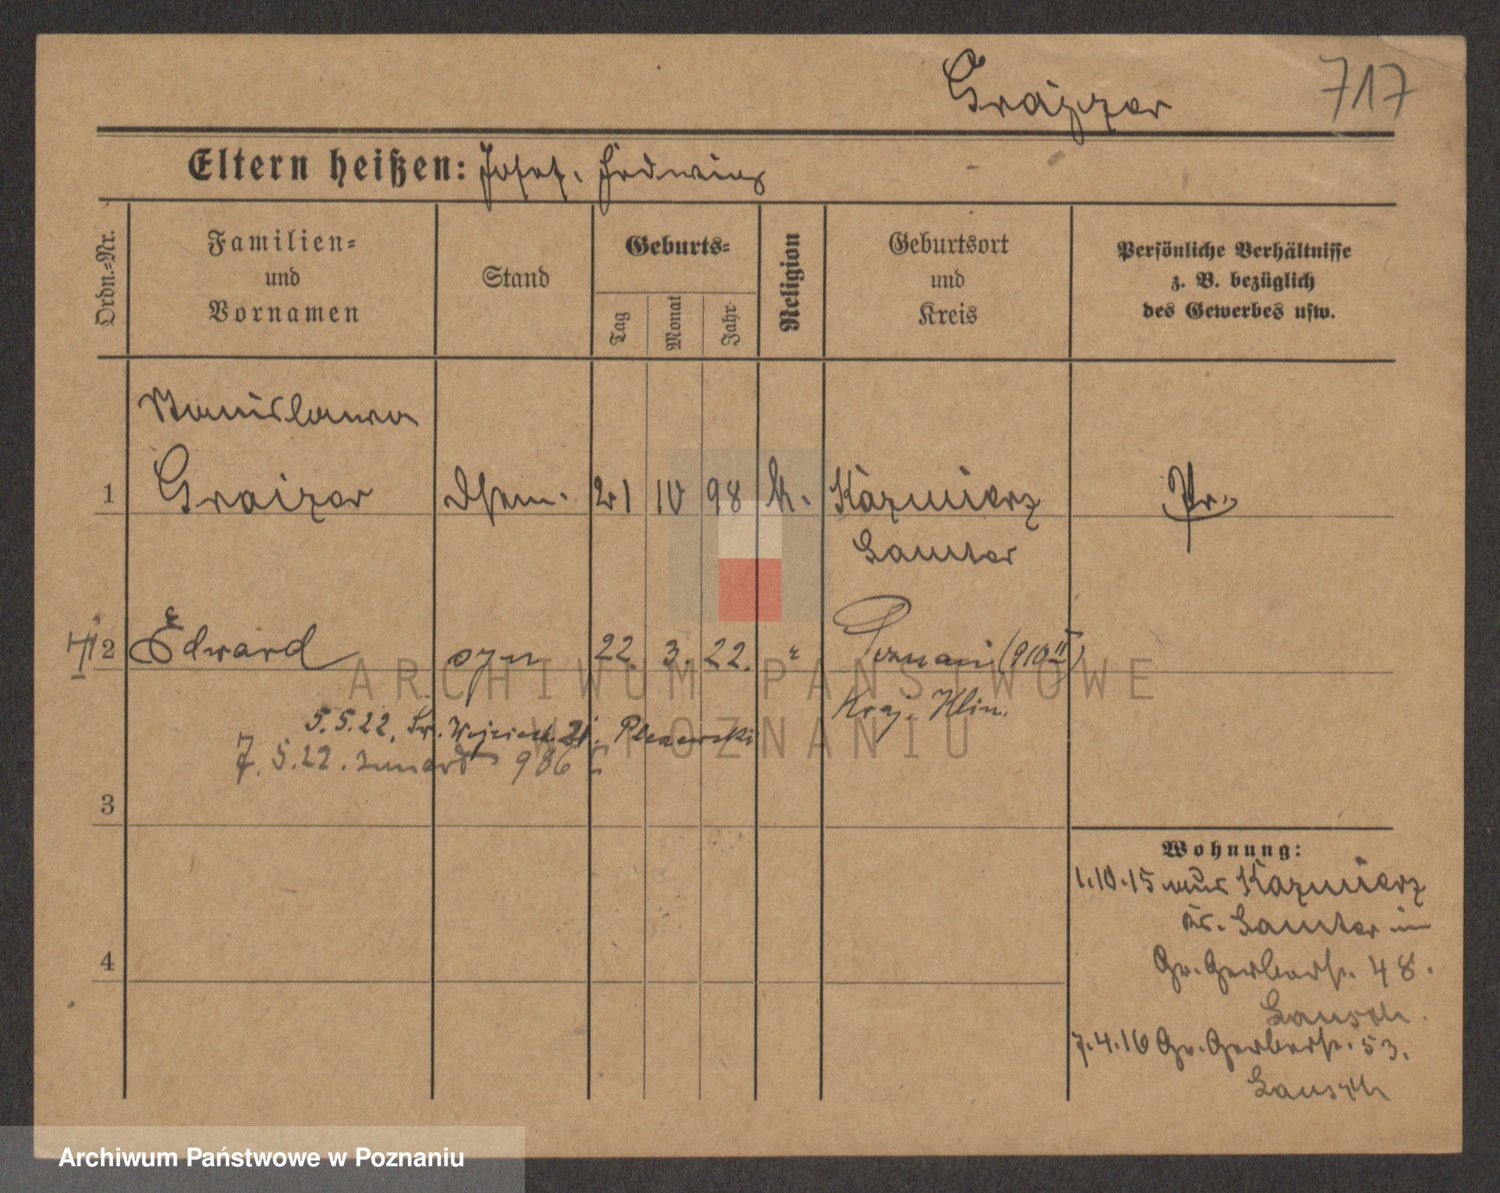 Grajzer
717
Eltern heißen: Josef, Hedwig
Ordn.-Nr.
Familien-
und
Vornamen
Stand
Geburts-
Tag
Monat
Jahr
Religion
Geburtsort
und
Kreis
Persönliche Verhältnisse
z. B. bezüglich
des Gewerbes usw.
Stanislawa
1 Graizer 21 10 98 k. Kazmierz Pr.
Samter
2 Edward syn 22. 3. 22. " Poznań (910 II)
Kraj. Klin.
5.5.22. Św. Wojciech 21. Plezewski
7.5.22. 986
3
4
Wohnung:
1.10.15 aus Kazmierz
Kr. Samter in
Gr. Gerberst. 48.
7.4.16 Gr. Gerberst. 53.
ARCHIWUM PAŃSTWOWE
W POZNANIU
Archiwum Państwowe w Poznaniu